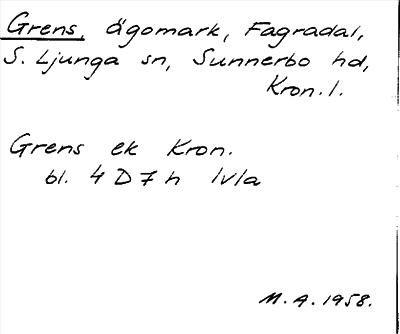 Grens, ägomark, Fagradal,
S. Ljunga sn, Sunnerbo hd,
Kron. l.
Grens ek Kron.
bl. 4 D 7 h lvla
M. A. 1958.